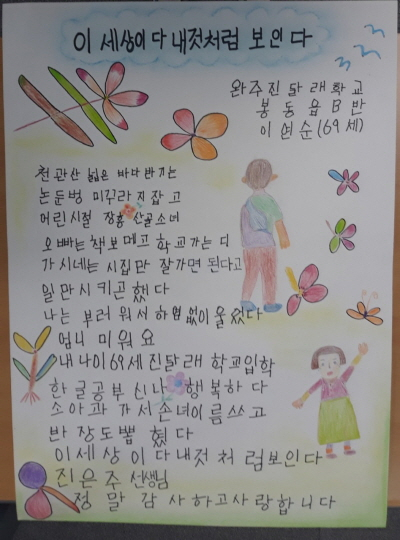 이 세상이 다 내것처럼 보인다
완주진달래학교
봉동읍 B반
이연순(69세)
천관산 넓은 바다 반기는
논둔벙 미꾸라지 잡고
어린시절 장흥 산골소녀
오빠는 책보메고 학교가는디
가시네는 시집만 잘가면 된다고
일만시키곤 했다
나는 부러워서 하염없이 울었다
엄니 미워요
내나이 69세 진달래 학교입학
한글공부 신나 행복하다
소아과 가서 손녀이름쓰고
반장도뽑혔다
이세상이 다 내것처럼보인다
진은주 선생님
정말 감사하고사랑합니다